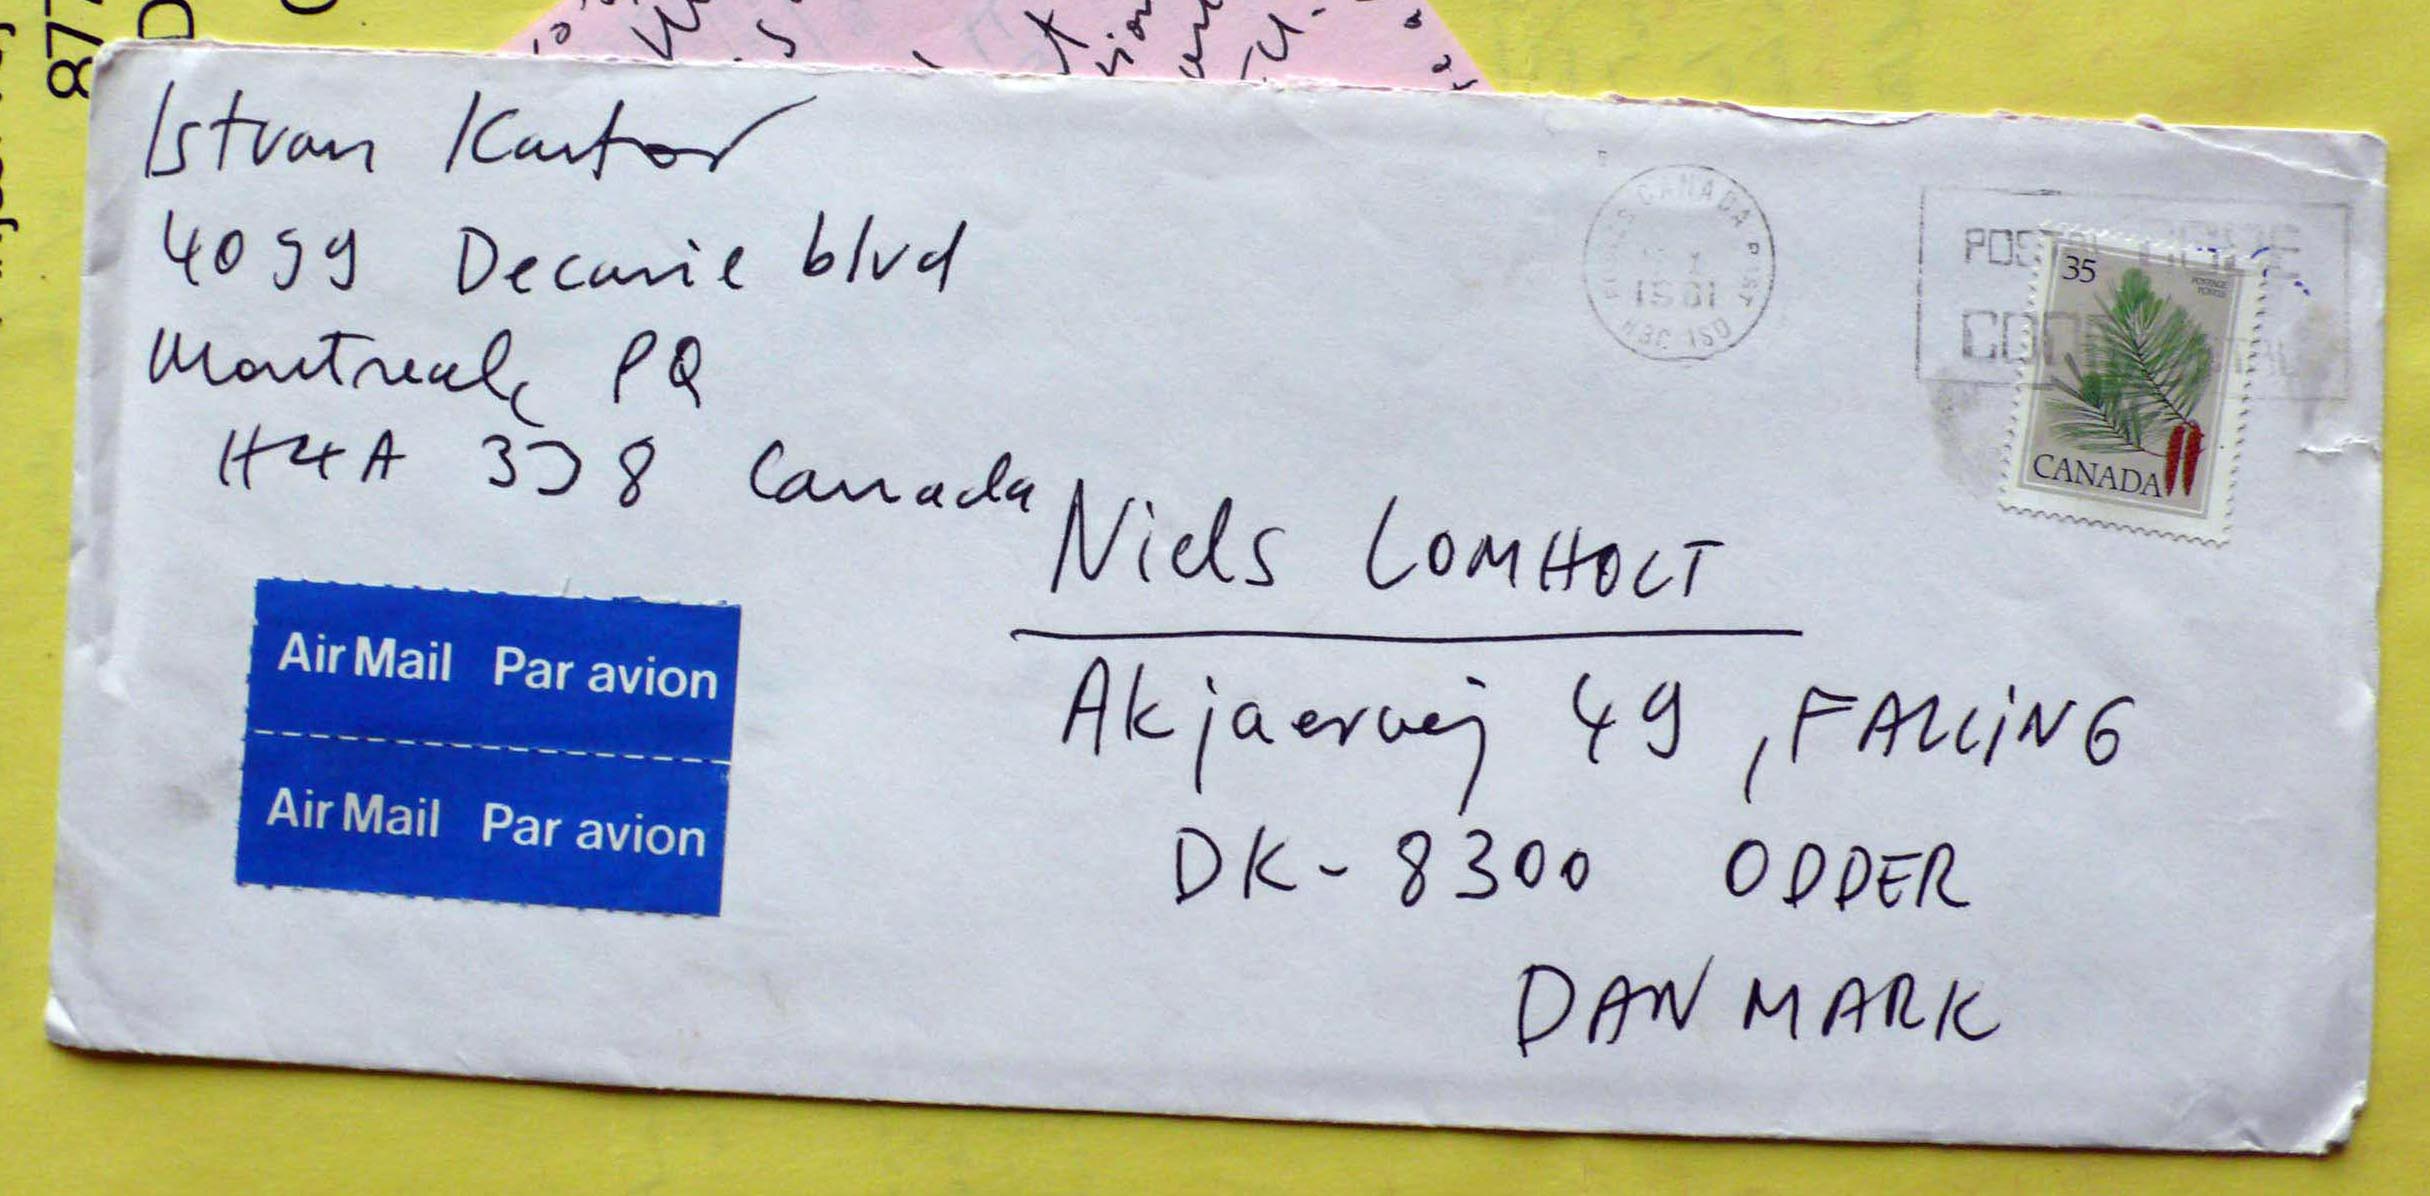 877
D
Istvan Kantor
4099 Decarie blvd
Montreal, PQ
H4A 3J8 Canada
CANADA
1981
POSTAL CODE
CODE POSTAL
35
POSTAGE
POSTES
CANADA
Niels LOMHOLT
Akjaervej 49, FALLiNG
DK-8300 ODDER
DANMARK
Air Mail Par avion
Air Mail Par avion